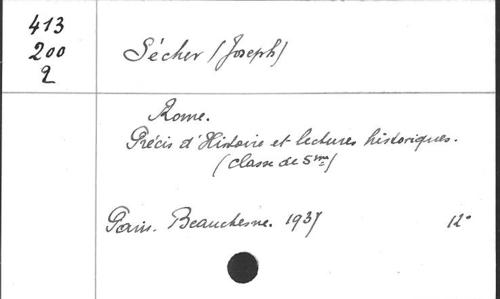 413
200
2
Sécher (Joseph)
Rome.
Précis d'Histoire et lectures historiques.
(Classe de 5me)
Paris. Beauchesne. 1937 12°